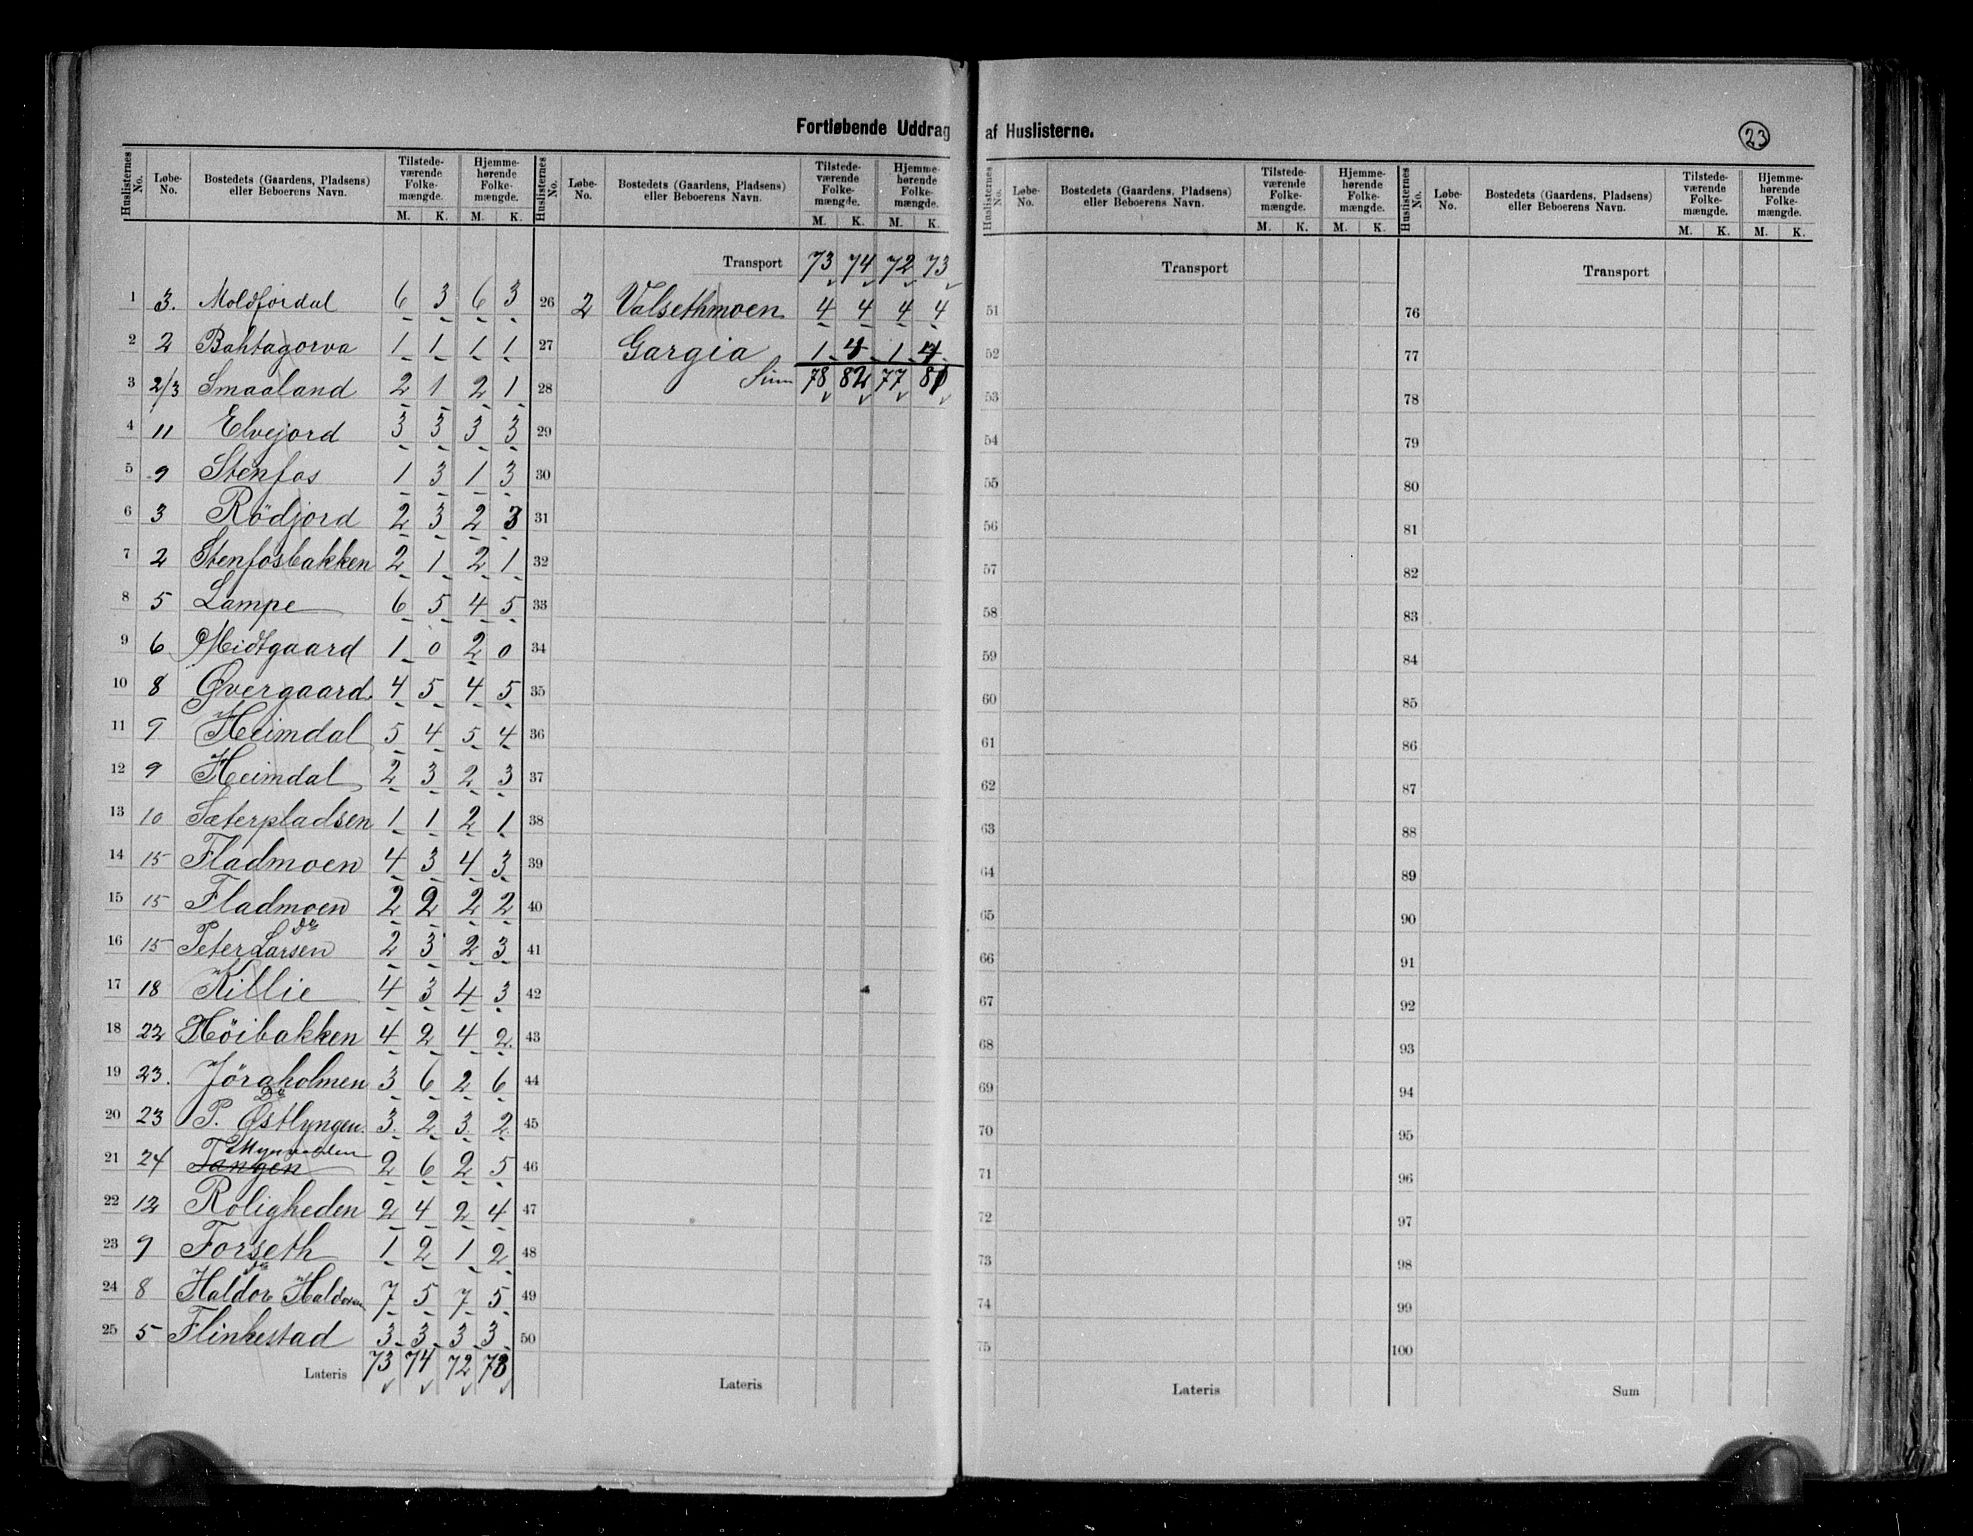 Fortløbende Uddrag af Huslisterne.
23
Huslisternes No. Løbe-No. Bostedets (Gaardens, Pladsens) eller Beboerens Navn. Tilstedeværende Folkemængde. M. K. Hjemmehørende Folkemængde. M. K.
1 3. Moldfördal 6 3 6 3
2 2 Bahtagorva 1 1 1 1
3 2/3 Smaaland 2 1 2 1
4 11 Elvejord 3 3 3 3
5 9 Stenfos 1 3 1 3
6 3 Rödjord 2 3 2 3
7 2 Stenfosbakken 2 1 2 1
8 5 Lampe 6 5 4 5
9 6 Midtgaard 1 0 2 0
10 8 Øvergaard 4 5 4 5
11 9 Heimdal 5 4 5 4
12 9 Heimdal 2 3 2 3
13 10 Sæterpladsen 1 1 2 1
14 15 Fladmoen 4 3 4 3
15 15 Fladmoen 2 2 2 2
do
16 15 Peter Larsen 2 3 2 3
17 18 Killie 4 3 4 3
18 22 Höibakken 4 2 4 2
19 23. Jöraholmen 3 6 2 6
Do
20 23 P. Østlyngen 3 2 3 2
21 24 Tangen 2 6 2 5
22 12 Roligheden 2 4 2 4
23 9 Forseth 1 2 1 2
do
24 8 Haldor Haldorsen 7 5 7 5
25 5 Flinkestad 3 3 3 3
Lateris 73 74 72 73
Huslisternes No. Løbe-No. Bostedets (Gaardens, Pladsens) eller Beboerens Navn. Tilstedeværende Folkemængde. M. K. Hjemmehørende Folkemængde. M. K.
Transport 73 74 72 73
26 2 Valsethmoen 4 4 4 4
27 Gargia 1 4 1 4
28 Sum 78 82 77 81
29
30
31
32
33
34
35
36
37
38
39
40
41
42
43
44
45
46
47
48
49
50
Lateris
Huslisternes No. Løbe-No. Bostedets (Gaardens, Pladsens) eller Beboerens Navn. Tilstedeværende Folkemængde. M. K. Hjemmehørende Folkemængde. M. K.
Transport
51
52
53
54
55
56
57
58
59
60
61
62
63
64
65
66
67
68
69
70
71
72
73
74
75
Lateris
Huslisternes No. Løbe-No. Bostedets (Gaardens, Pladsens) eller Beboerens Navn. Tilstedeværende Folkemængde. M. K. Hjemmehørende Folkemængde. M. K.
Transport
76
77
78
79
80
81
82
83
84
85
86
87
88
89
90
91
92
93
94
95
96
97
98
99
100
Sum